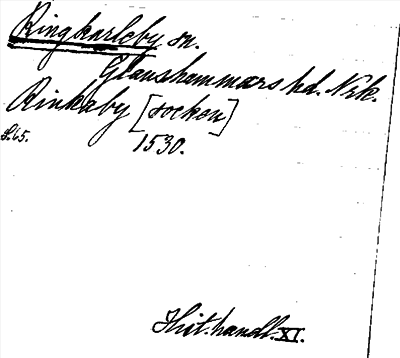 Ringkarleby sn.
Glanshammars hd. Nrk.
Rinkaby [socken]
s. 65.
1530.
Hist. handl. XI.